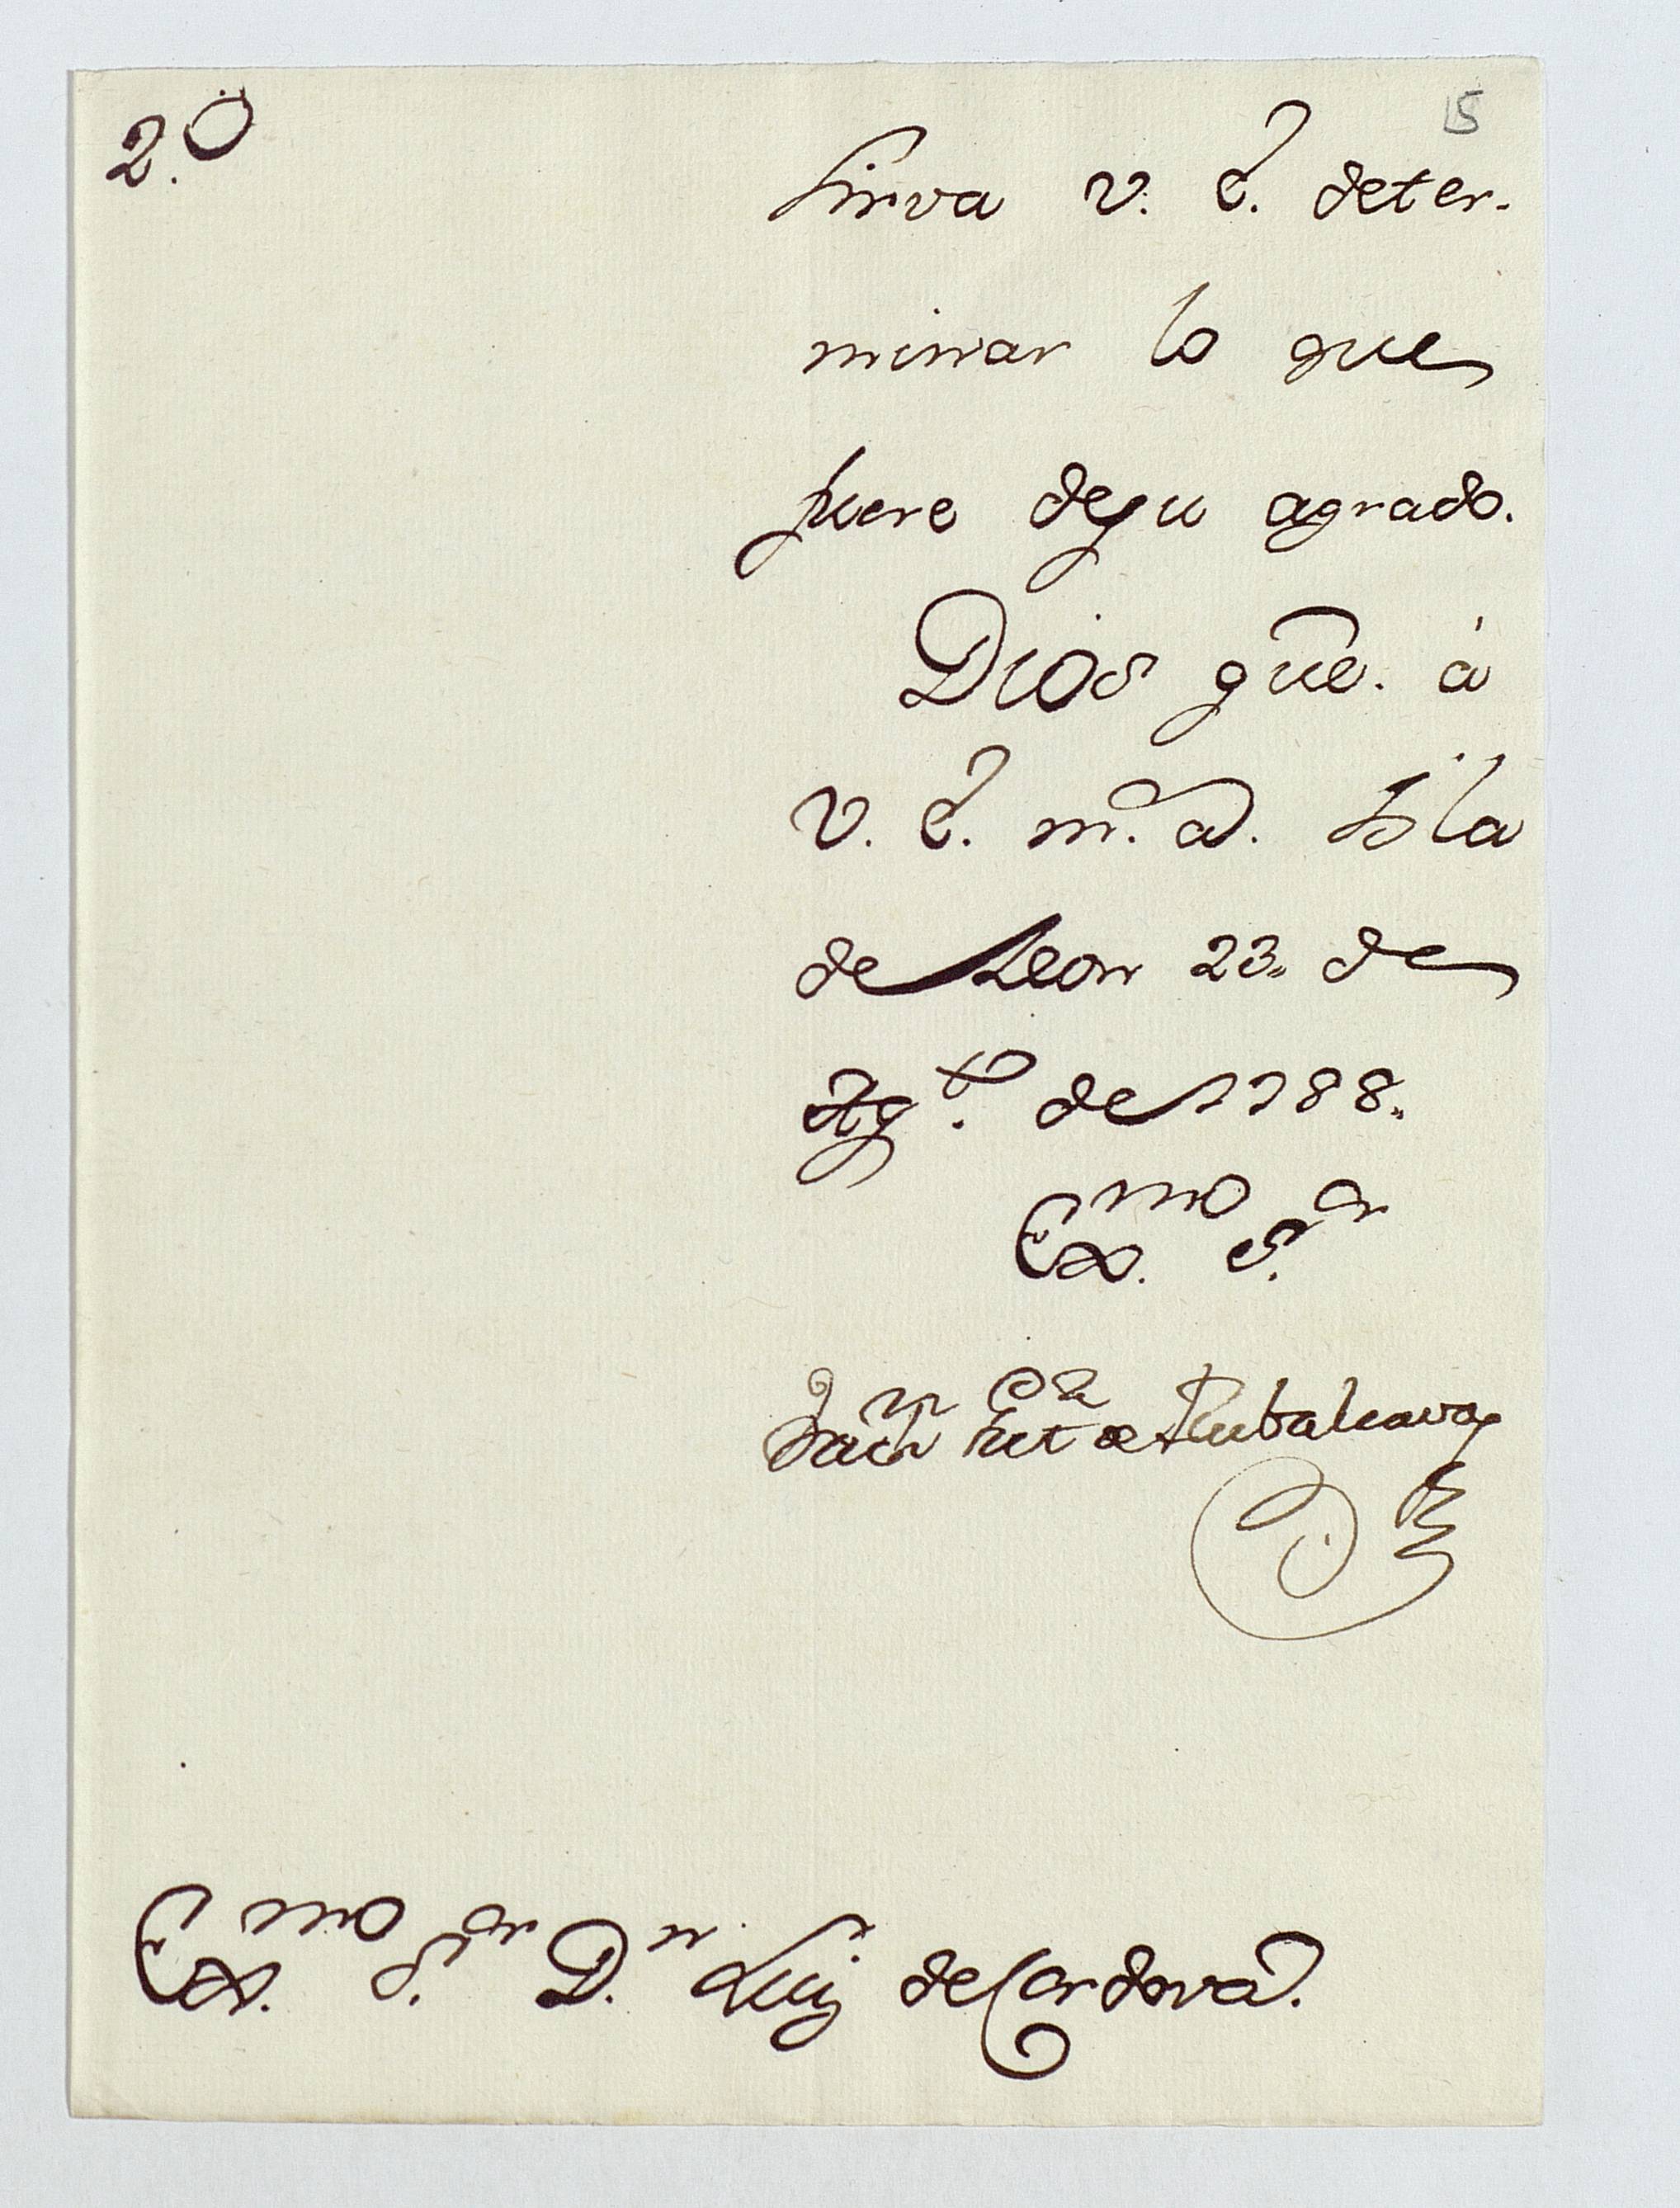 2.º
15
sirva V. E. deter-
minar lo que
fuere de su agrado.
Dios gũe. à
V. E. m.s a.s Isla
de Leon 23. de
Ag.to de 1788.
Ex.mo S.or
Jacin Rubalcava
Ex.mo S.or D.n Luis de Cordova.